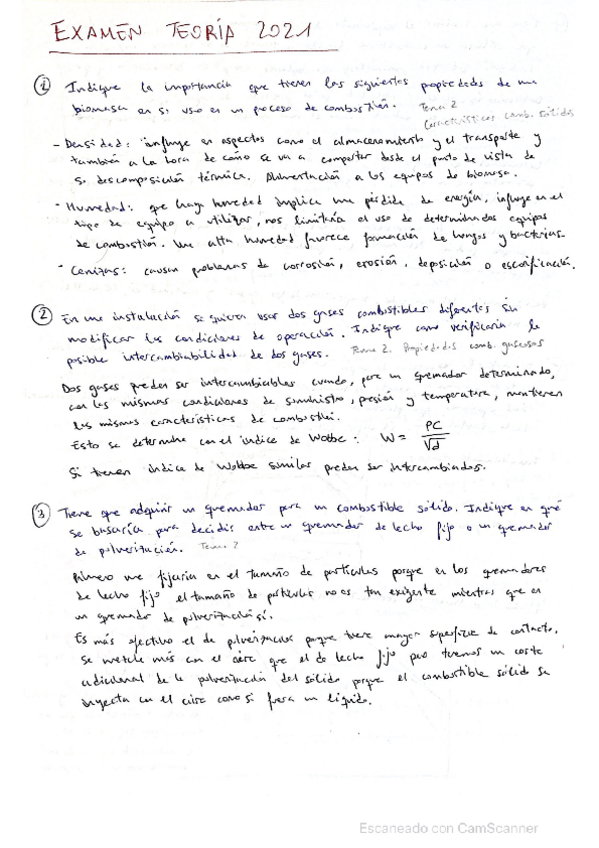 EXAMEN TEORÍA 2021
① Indique la importancia que tienen las siguientes propiedades de una
biomasa en su uso en un proceso de combustión. Tema 2
Características comb. sólidos
- Densidad: influye en aspectos como el almacenamiento y el transporte y
también a la hora de cómo se va a comportar desde el punto de vista de
su descomposición térmica. Alimentación a los equipos de biomasa.
- Humedad: que haya humedad implica una pérdida de energía, influye en el
tipo de equipo a utilizar, nos limitaría el uso de determinados equipos
de combustión. Una alta humedad favorece formación de hongos y bacterias.
- Cenizas: causan problemas de corrosión, erosión, deposición o escorificación.
② En una instalación se quieren usar dos gases combustibles diferentes sin
modificar las condiciones de operación. Indique como verificaría la
posible intercambiabilidad de dos gases. Tema 2. Propiedades comb. gaseosos
Dos gases pueden ser intercambiables cuando, para un quemador determinado,
con las mismas condiciones de suministro, presión y temperatura, mantienen
las mismas características de combustión.
Esto se determina con el índice de Wobbe: W = PC / √d
Si tienen índice de Wobbe similar pueden ser intercambiados.
③ Tiene que adquirir un quemador para un combustible sólido. Indique en qué
se basaría para decidir entre un quemador de lecho fijo o un quemador
de pulverización. Tema 2
Primero me fijaría en el tamaño de partículas porque en los quemadores
de lecho fijo el tamaño de partículas no es tan exigente mientras que en
un quemador de pulverización sí.
Es más efectivo el de pulverización porque tiene mayor superficie de contacto,
se mezcla más con el aire que el de lecho fijo pero tenemos un coste
adicional de la pulverización del sólido porque el combustible sólido se
inyecta con el aire como si fuera un líquido.
Escaneado con CamScanner